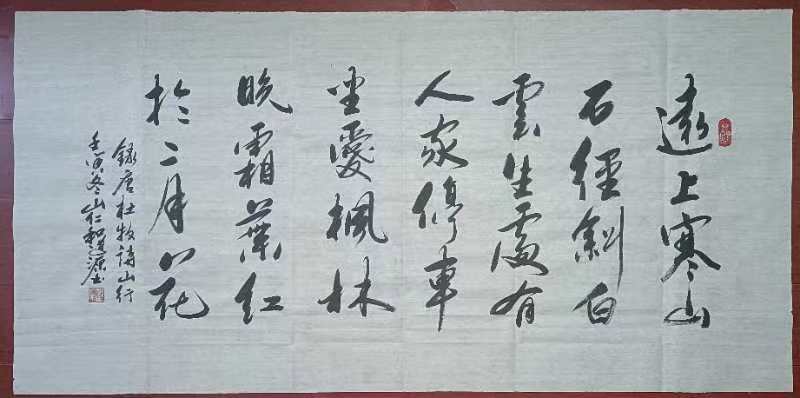 遠上寒山
石徑斜白
雲生處有
人家停車
坐愛楓林
晚霜葉紅
於二月花
錄唐杜牧詩山行
壬寅冬山仁程源書